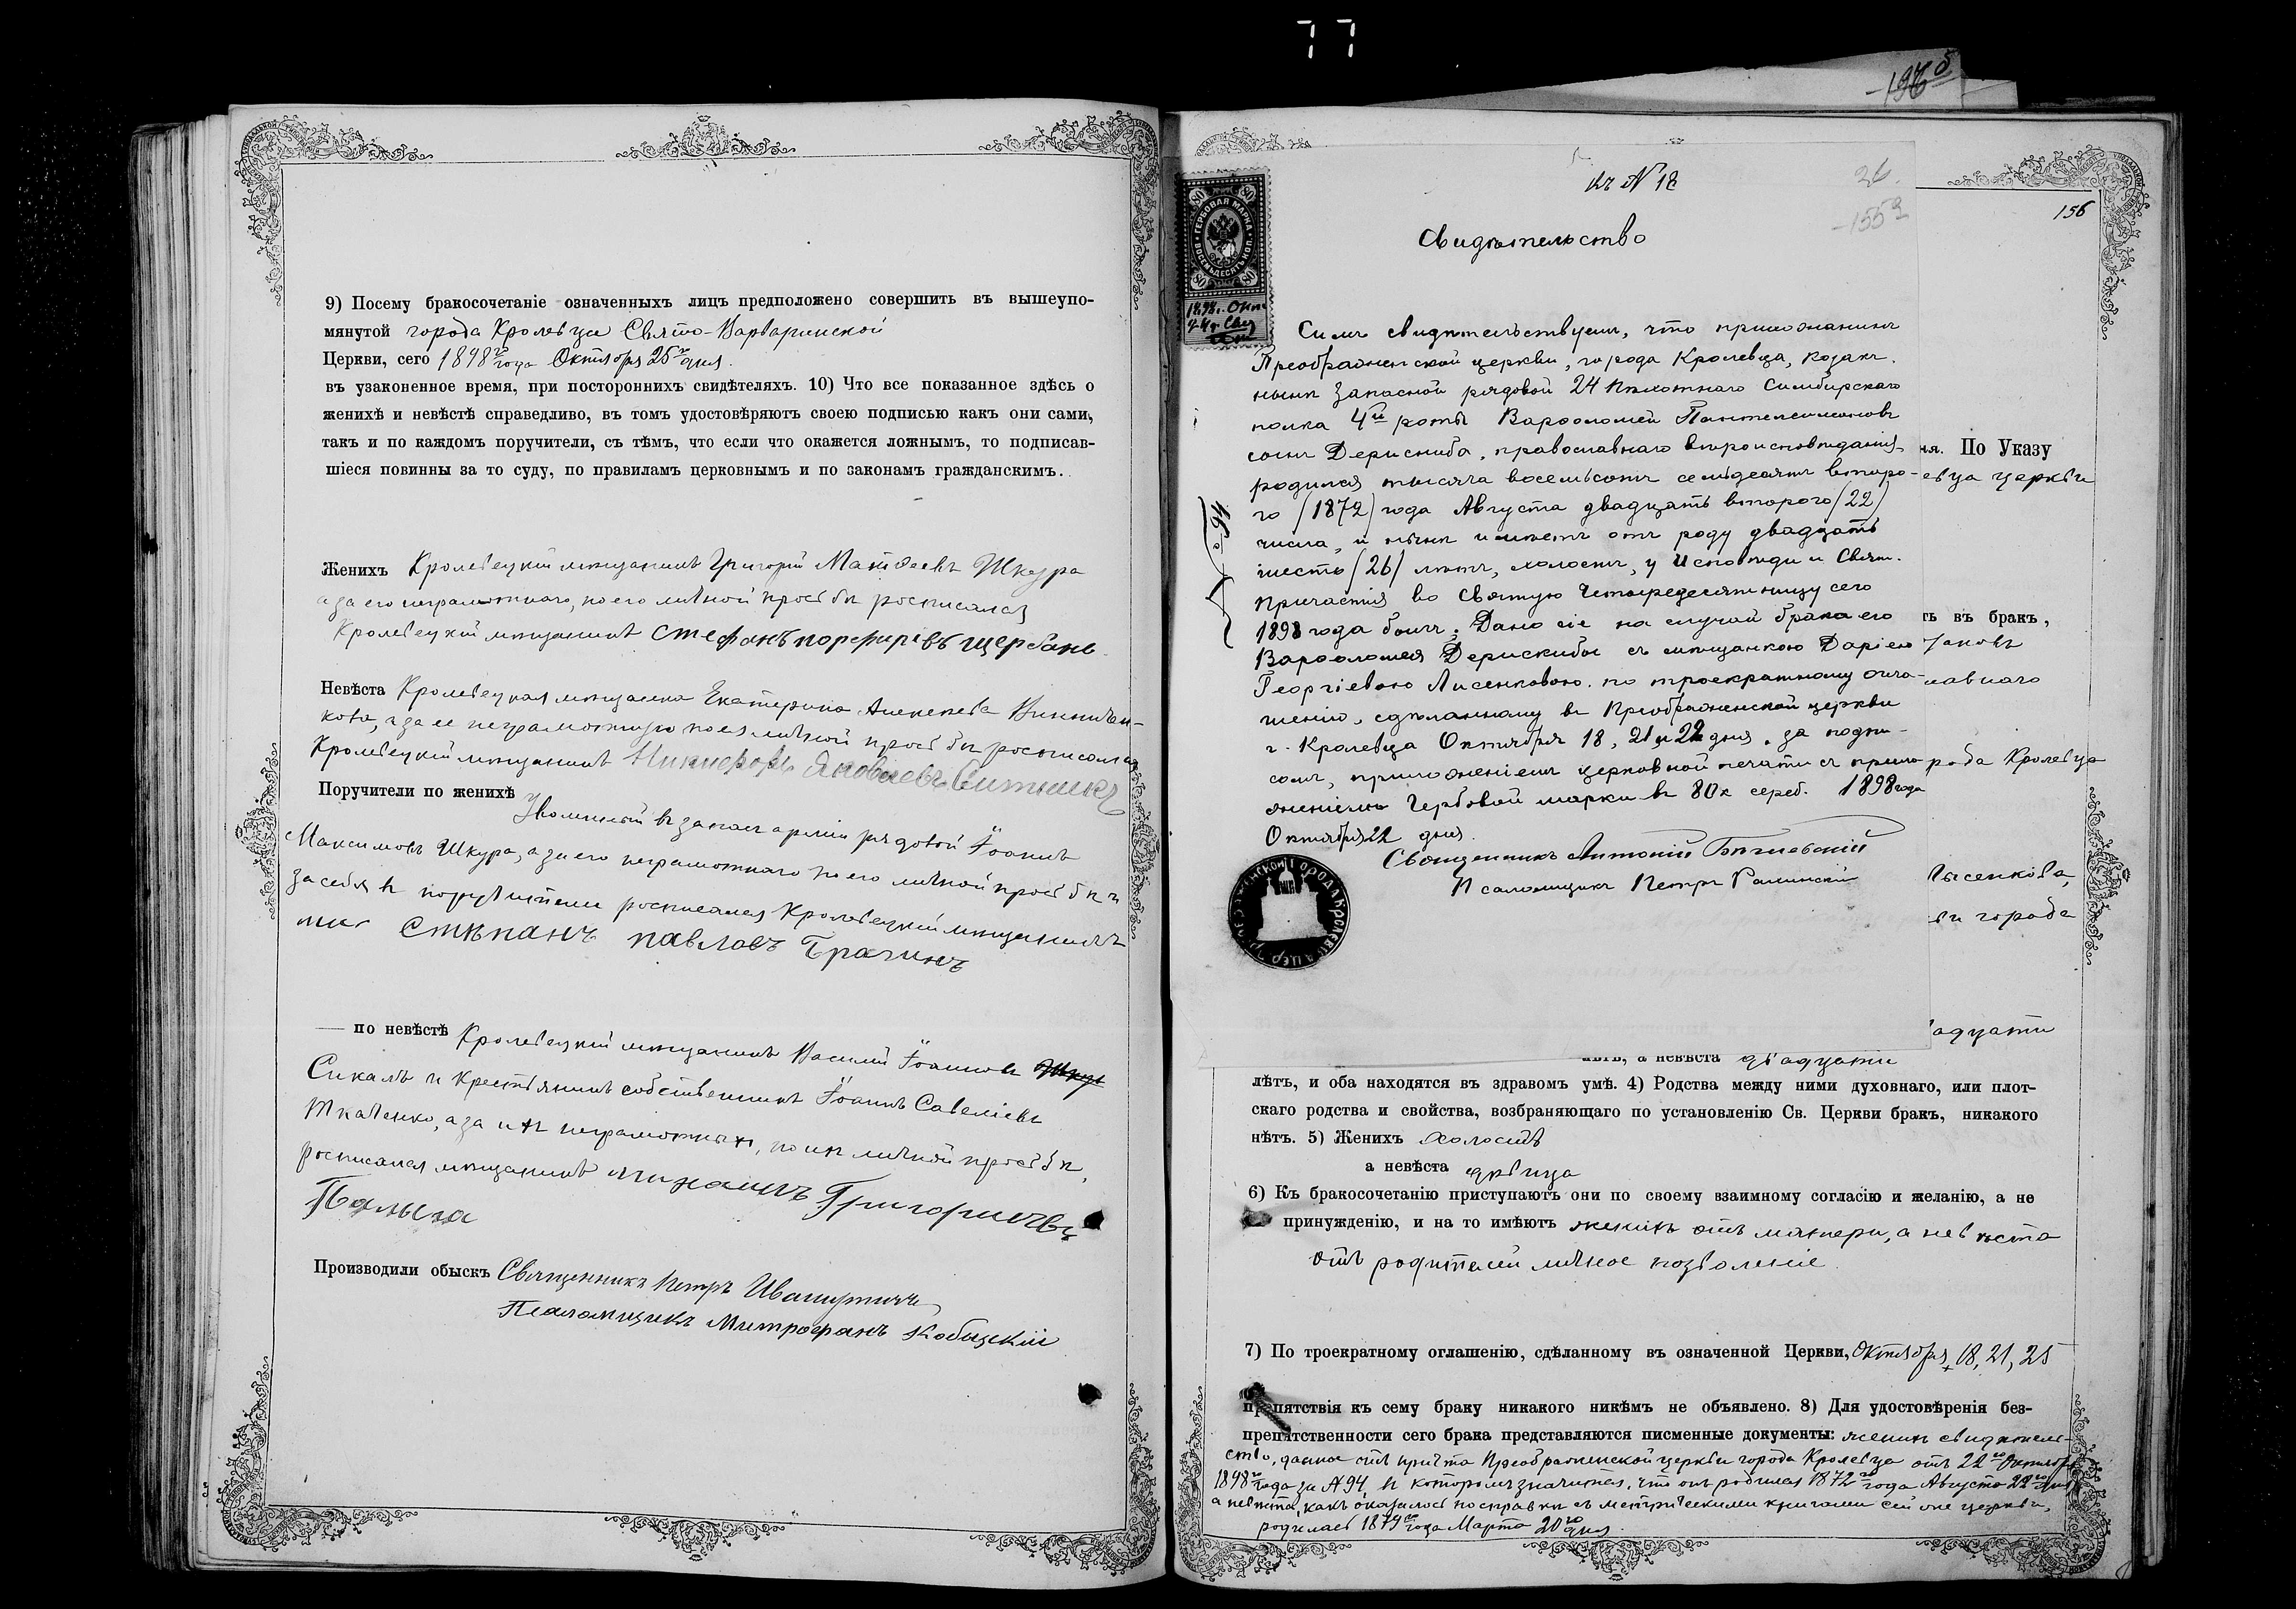 77
136 б
9) Посему бракосочетаніе означенныхъ лицъ предположено совершить въ вышеупо-
мянутой города Кролевца Свято-Варваринской
Церкви, сего 1898го года Октября 25го дня.
въ узаконенное время, при постороннихъ свидѣтеляхъ. 10) Что все показанное здѣсь о
женихѣ и невѣстѣ справедливо, въ томъ удостовѣряютъ своею подписью какъ они сами,
такъ и по каждомъ поручители, съ тѣмъ, что если что окажется ложнымъ, то подписав-
шіеся повинны за то суду, по правиламъ церковнымъ и по законамъ гражданскимъ.
Женихъ Кролевецкій мѣщанинъ Григорій Матѳеевъ Шкура
а за его неграмотнаго, по его личной просьбѣ росписался
Кролевецкій мѣщанинъ Стефанъ порфиріевъ щербань
Невѣста Кролевецкая мѣщанка Екатерина Алексеева
кова, а за ее неграмотную по ея личной просьбѣ росписался
Кролевецкій мѣщанинъ Никифоръ Яковлевъ
Поручители по женихѣ Уволенный въ запасъ арміи рядовой Іоаннъ
Максимовъ Шкура, а за его неграмотнаго по его личной просьбѣ и
за себя и поручители росписался Кролевецкій мѣщанинъ
Стѣпанъ павловъ Брагинъ
— по невѣстѣ Кролевецкій мѣщанинъ Василій Іоанновъ
Сикалъ и Крестьянинъ собственникъ Іоаннъ Савеліевъ
Ткаченко, а за ихъ неграмотныхъ, по ихъ личной просьбѣ,
росписался мѣщанинъ михаилъ Григориевъ
Палыга
Производили обыскъ Священникъ Петръ
Псаломщикъ Митрофанъ Кобыцкій
къ N 18
26.
155 а
156
ГЕРБОВАЯ МАРКА
ВОСЕМЬДЕСЯТЪ КОП.
80
Свидѣтельство
Симъ свидѣтельствуемъ, что прихожанинъ
Преображенской церкви, города Кролевца, козакъ.
нынѣ запасной рядовой 24 пѣхотнаго Симбирскаго
полка 4й роты Варѳоломей Пантелеимоновъ
сынъ Дерискиба, православнаго вѣроисповѣданія,
родился тысяча восемьсотъ семьдесятъ второ-
го (1872) года Августа двадцать второго (22)
числа, и нынѣ имѣетъ отъ роду двадцать
шесть (26) лѣтъ, холостъ, у Исповѣди и Свят.
Причастія во Святую Четыредесятницу сего
1898 года былъ; Дано сіе на случай брака его
Варѳоломея Дерискибы съ мѣщанкою Даріею
Георгіевою Лисенковою. по троекратному огла-
шенію, сдѣланному въ Преображенской церкви
г. Кролевца Октября 18, 21 и 22 дня, за подпи-
сомъ, приложеніемъ церковной печати съ прило-
женіемъ Гербовой марки въ 80 к сереб. 1898 года
Октября 22 дня.
Священникъ Антоній
Псаломщикъ Петръ
№ 94
ія. По Указу
евца церкви
ть въ бракъ,
лавнаго
рода Кролевца
ысенкова,
ви города
адцати
лѣтъ, а невѣста двадцати
лѣтъ, и оба находятся въ здравомъ умѣ. 4) Родства между ними духовнаго, или плот-
скаго родства и свойства, возбраняющаго по установленію Св. Церкви бракъ, никакого
нѣтъ. 5) Женихъ холостъ
а невѣста дѣвица
6) Къ бракосочетанію приступаютъ они по своему взаимному согласію и желанію, а не
принужденію, и на то имѣютъ женихъ отъ матери, а невѣста
отъ родителей личное позволеніе
7) По троекратному оглашенію, сдѣланному въ означенной Церкви, Октября 18, 21, 25
препятствія къ сему браку никакого никѣмъ не объявлено. 8) Для удостовѣренія без-
препятственности сего брака представляются писменные документы: женихъ свидѣтель-
ство, данное отъ причта Преображенской церкви города Кролевца отъ 22го Октября
1898го года за № 94, въ которомъ значится, что онъ родился 1872го года Августа 22го дня
а невѣста, какъ оказалось по справкѣ съ метрическими книгами сей же церкви,
родилась 1879го года Марта 20го дня